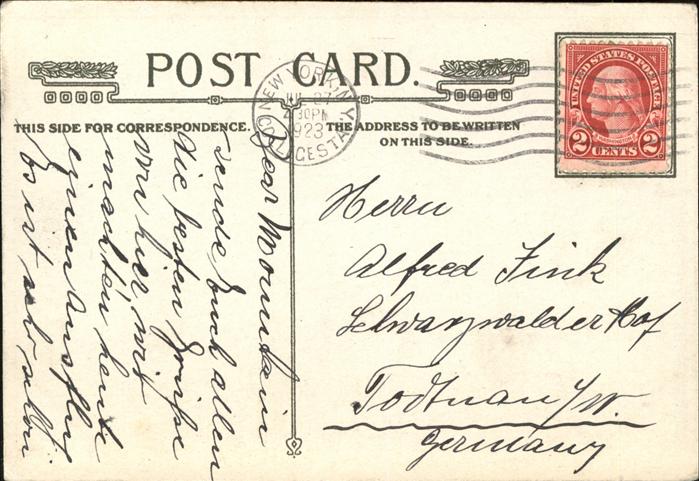 POST CARD.
THIS SIDE FOR CORRESPONDENCE.
THE ADDRESS TO BE WRITTEN
ON THIS SIDE.
NEW YORK, N.Y.
27
30 PM
1923
UNITED STATES POSTAGE
2 CENTS 2
Herrn
Alfred Fink
Schwarzwalder Hof
Todtnau i/W.
Germany
Bear Mountain
sende Euch allen
die besten Grüße
von hier. wir
machten heute
einen Ausflug
Es ist sehr schön